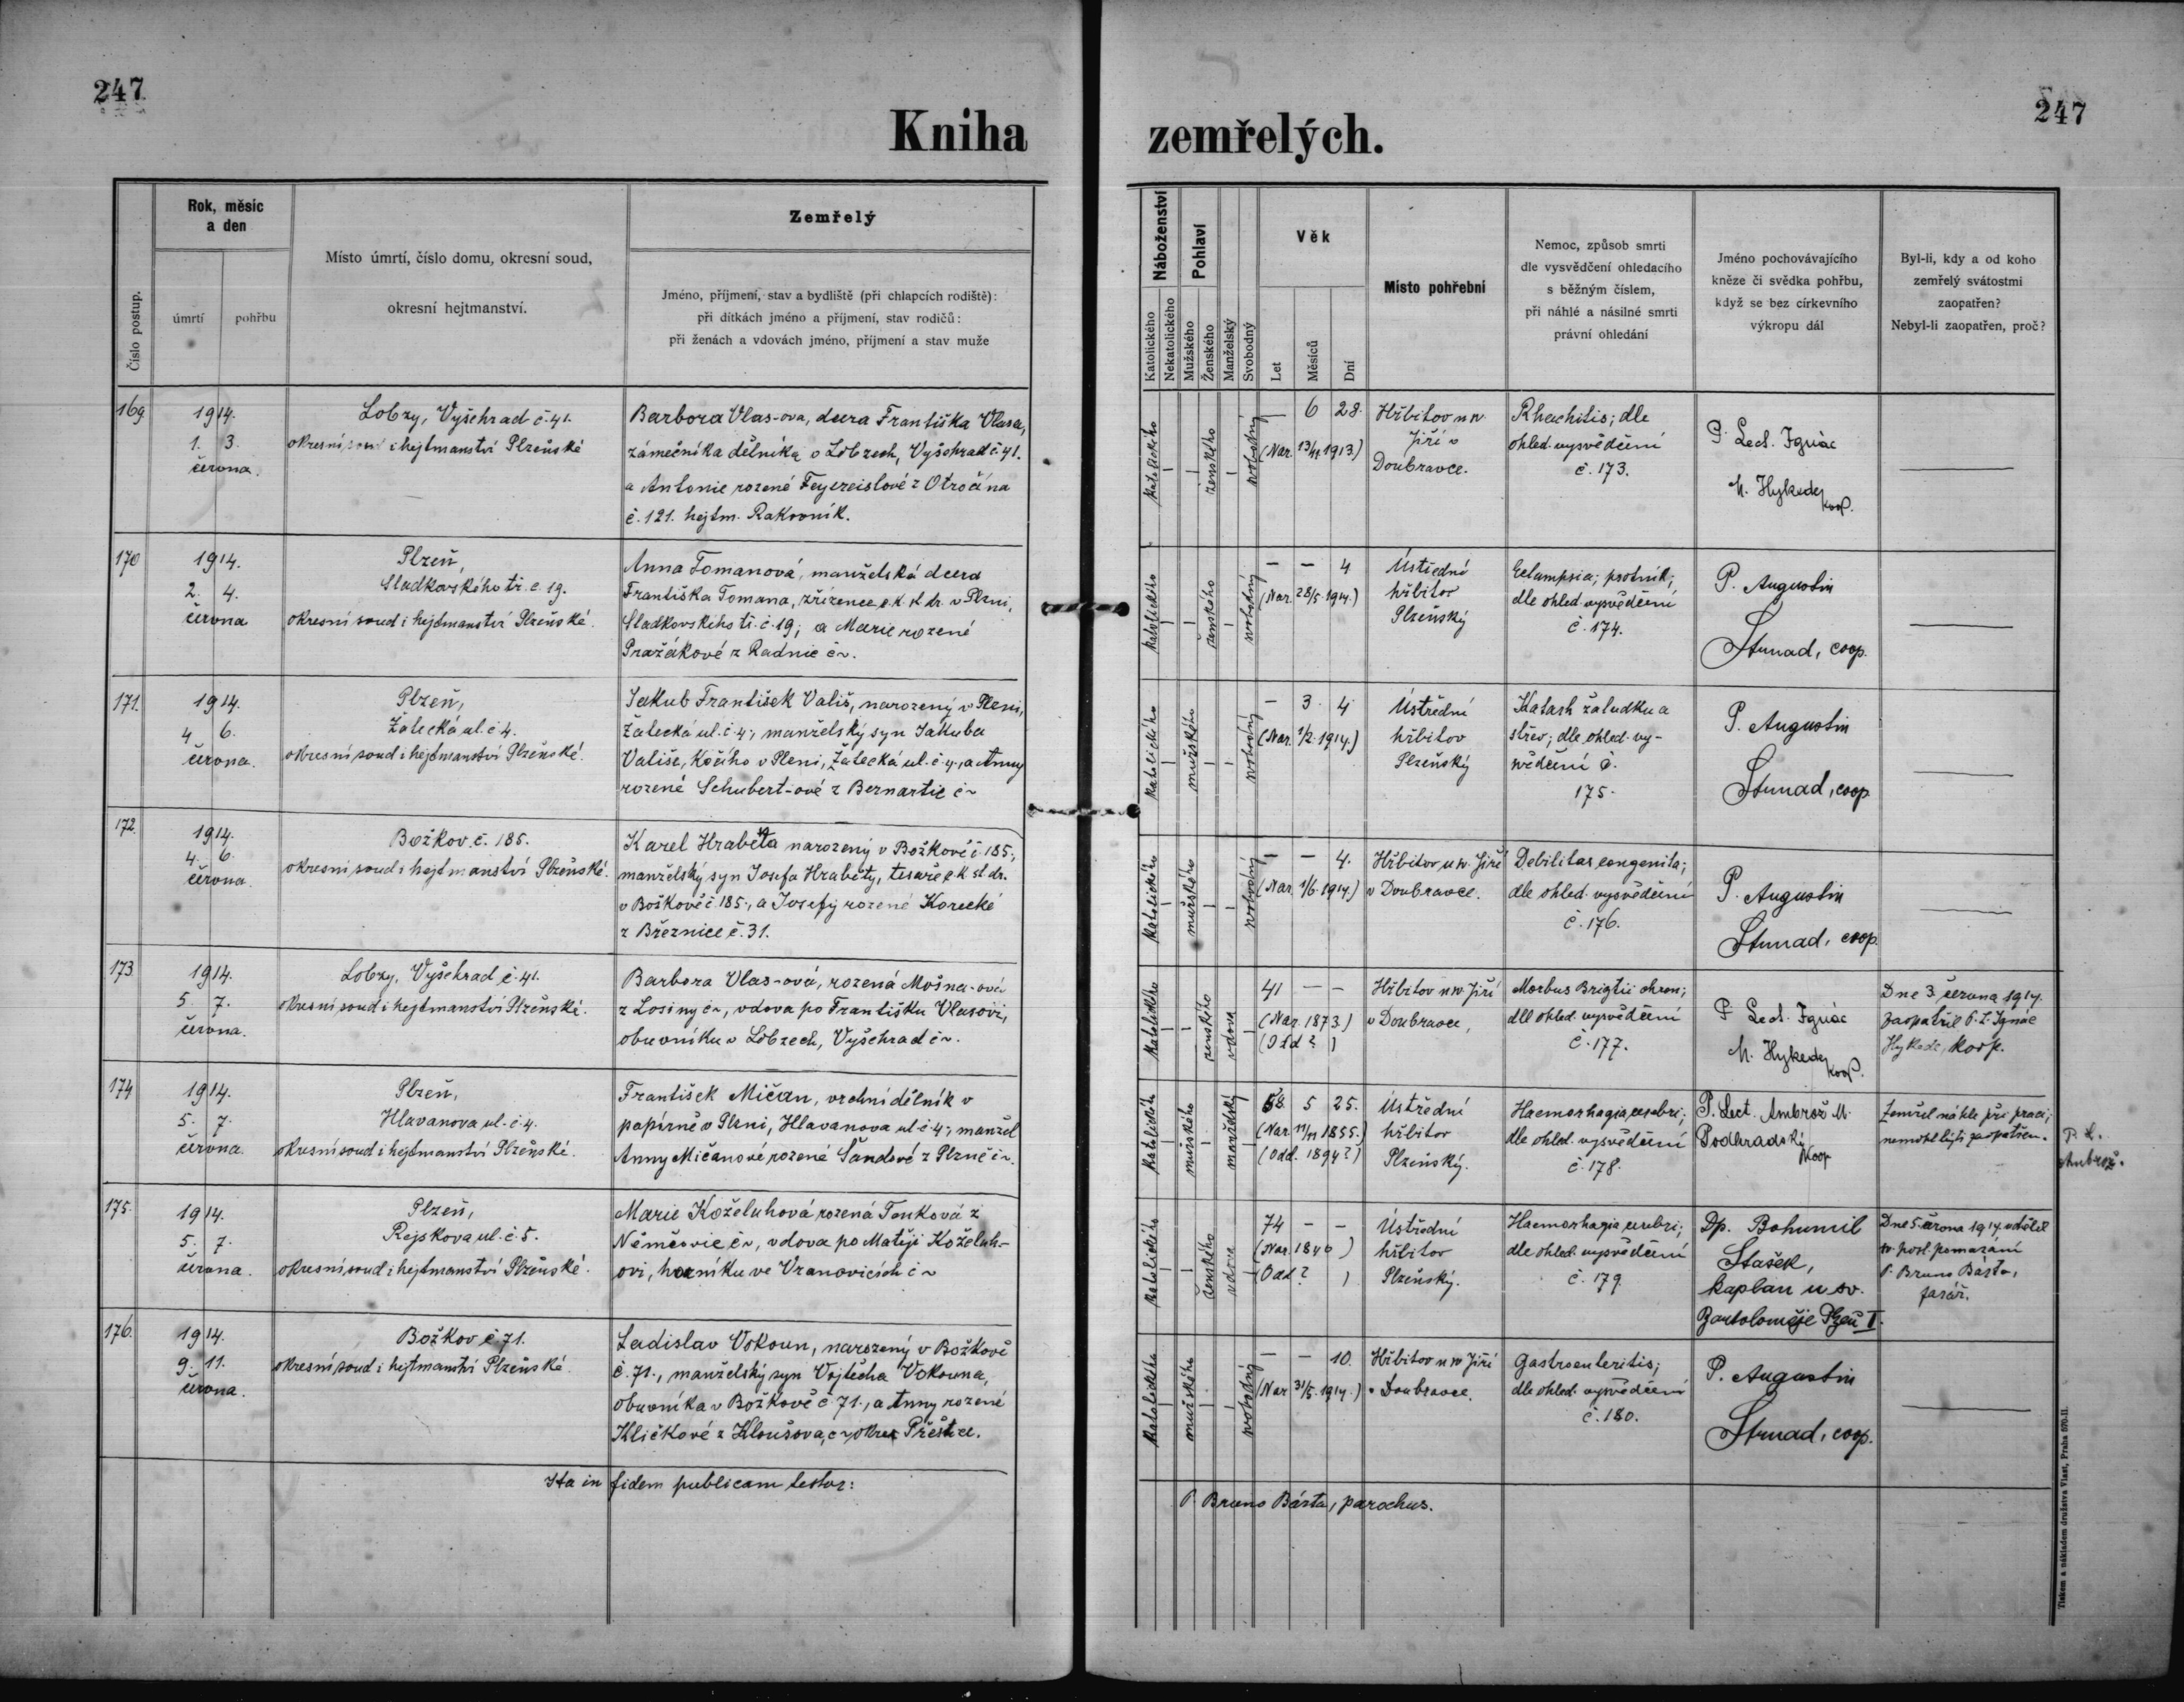 247
247
Kniha zemřelých.
Číslo postup.
Rok, měsíc
a den
úmrtí
pohřbu
Místo úmrtí, číslo domu, okresní soud,
okresní hejtmanství.
Zemřelý
Jméno, příjmení, stav a bydliště (při chlapcích rodiště):
při dítkách jméno a příjmení, stav rodičů:
při ženách a vdovách jméno, příjmení a stav muže
Náboženství
Katolického
Nekatolického
Pohlaví
Mužského
Ženského
Manželský
Svobodný
Věk
Let
Měsíců
Dní
Místo pohřební
Nemoc, způsob smrti
dle vysvědčení ohledacího
s běžným číslem,
při náhlé a násilné smrti
právní ohledání
Jméno pochovávajícího
kněze či svědka pohřbu,
když se bez církevního
výkropu dál
Byl-li, kdy a od koho
zemřelý svátostmi
zaopatřen?
Nebyl-li zaopatřen, proč?
169
1914.
1. 3.
června.
Lobzy, Vyšehrad č. 41.
okresní soud i hejtmanství Plzeňské
Barbora Vlas-ova, dcera Františka Vlasa,
zámečníka dělníka v Lobzech, Vyšehrad č. 41.
a Antonie rozené Feyereislové z Otročína
č. 121. hejtm. Rakovník.
katolického
ženského
svobodný
— 6 28.
(Nar. 13/11 1913)
Hřbitov u sv.
Jiří v
Doubravce.
Rhachitis; dle
ohled. vysvědčení
č. 173.
P. Lect. Ignác
M. Hykede
koop.
170
1914.
2. 4.
června
Plzeň,
Sladkovského tř. č. 19.
okresní soud i hejtmanství Plzeňské.
Anna Tomanová, manželská dcera
Františka Tomana, zřízence c. k. st. dr. v Plzni,
Sladkovského tř. č. 19; a Marie rozené
Pražákové z Radnic č~.
katolického
ženského
svobodný
— — 4
(Nar. 28/5 1914.)
Ústřední
hřbitov
Plzeňský
Eclampsia; psotník;
dle ohled. vysvědčení
č. 174.
P. Augustin
Strnad, coop.
171.
1914.
4. 6.
června.
Plzeň,
Žatecká ul. č. 4.
okresní soud i hejtmanství Plzeňské.
Jakub František Vališ, narozený v Plzni,
Žatecká ul. č. 4; manželský syn Jakuba
Vališe, kočího v Plzni, Žatecká ul. č. 4., a Anny
rozené Schubert-ové z Bernartic č~
katolického
mužského
svobodný
— 3. 4
(Nar. 1/2. 1914.)
Ústřední
hřbitov
Plzeňský
Katarh žaludku a
střev; dle ohled. vy-
svědčení č.
175.
P. Augustin
Strnad, coop.
172.
1914.
4. 6.
června.
Božkov č. 185.
okresní soud i hejtmanství Plzeňské.
Karel Hraběta narozený v Božkově č. 185.,
manželský syn Josefa Hraběty, tesaře c. k. st. dr.
v Božkově č. 185., a Josefy rozené Korecké
z Březnice č. 31.
katolického
mužského
svobodný
— — 4.
(Nar. 1/6. 1914.)
Hřbitov u sv. Jiří
v Doubravce.
Debilitas congenita;
dle ohled. vysvědčení
č. 176.
P. Augustin
Strnad, coop.
173
1914.
5. 7.
června.
Lobzy, Vyšehrad č. 41.
okresní soud i hejtmanství Plzeňské.
Barbora Vlas-ová, rozená Mošna-ová
z Losiny č~, vdova po Františku Vlasovi,
obuvníku v Lobzech, Vyšehrad č~.
katolického
ženského
vdova
41 — —
(Nar. 1873.)
(Odd? )
Hřbitov u sv. Jiří
v Doubravce,
Morbus Brigtii chron;
dle ohled. vysvědčení
č. 177.
P. Lect. Ignác
M. Hykede
koop.
Dne 3. června 1914.
zaopatřil P. L. Ignác
Hykede, koop.
174
1914.
5. 7.
června.
Plzeň,
Hlavanova ul. č. 4.
okresní soud i hejtmanství Plzeňské.
František Mičan, vrchní dělník v
papírně v Plzni, Hlavanova ul. č. 4; manžel
Anny Mičanové rozené Šandové z Plzně č~.
katolického
mužského
manželský
58. 5 25.
(Nar. 11/11 1855.)
(Odd. 1894?)
Ústřední
hřbitov
Plzeňský.
Haemorhagia cerebri;
dle ohled. vysvědčení
č. 178.
P. Lect. Ambrož M.
Podhradský
koop
Zemřel náhle při práci;
nemohl býti zaopatřen.
P. L.
Ambrož.
175.
1914.
5. 7.
června.
Plzeň,
Rejskova ul. č. 5.
okresní soud i hejtmanství Plzeňské.
Marie Koželuhová, rozená Tonková z
Němčovic č~, vdova po Matěji Koželuh-
ovi, horníku ve Vranovicích č~
katolického
ženského
vdova
74 — —
(Nar. 1840 )
(Odd? )
Ústřední
hřbitov
Plzeňský.
Haemorhagia cerebri;
dle ohled. vysvědčení
č. 179.
Dp. Bohumil
Stašek,
kaplan u sv.
Bartoloměje Plzeň I.
Dne 5. června 1914. udělil
sv. posl. pomazání
P. Bruno Bárta,
farář.
176.
1914.
9. 11.
června.
Božkov č. 71.
okresní soud i hejtmanství Plzeňské.
Ladislav Vokoun, narozený v Božkově
č. 71., manželský syn Vojtěcha Vokouna,
obuvníka v Božkově č. 71., a Anny rozené
Kličkové z Kloušova, č~, okres Přeštice.
katolického
mužského
svobodný
— — 10.
(Nar 31/5. 1914.)
Hřbitov u sv. Jiří
v Doubravce.
Gastroenteritis;
dle ohled. vysvědčení
č. 180.
P. Augustin
Strnad, coop.
Ita in fidem publicam testor:
P. Bruno Bárta, parochus.
Tiskem a nákladem družstva Vlast, Praha 570-II.